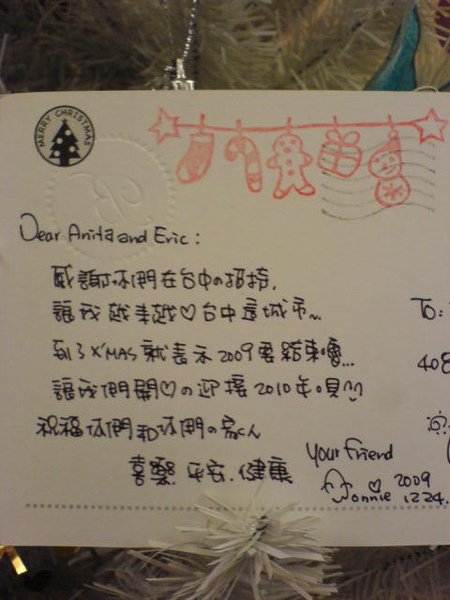 MERRY CHRISTMAS
Dear Anita and Eric:
感謝你們在台中の招待.
讓我越來越♡台中這城市~
到了X'MAS就表示2009要結束嚕...
讓我們開♡の迎接2010年唄^^
祝福你們和你們の家人
喜樂.平安.健康
Your Friend
♡ 2009
onnie 1224.
To:
408